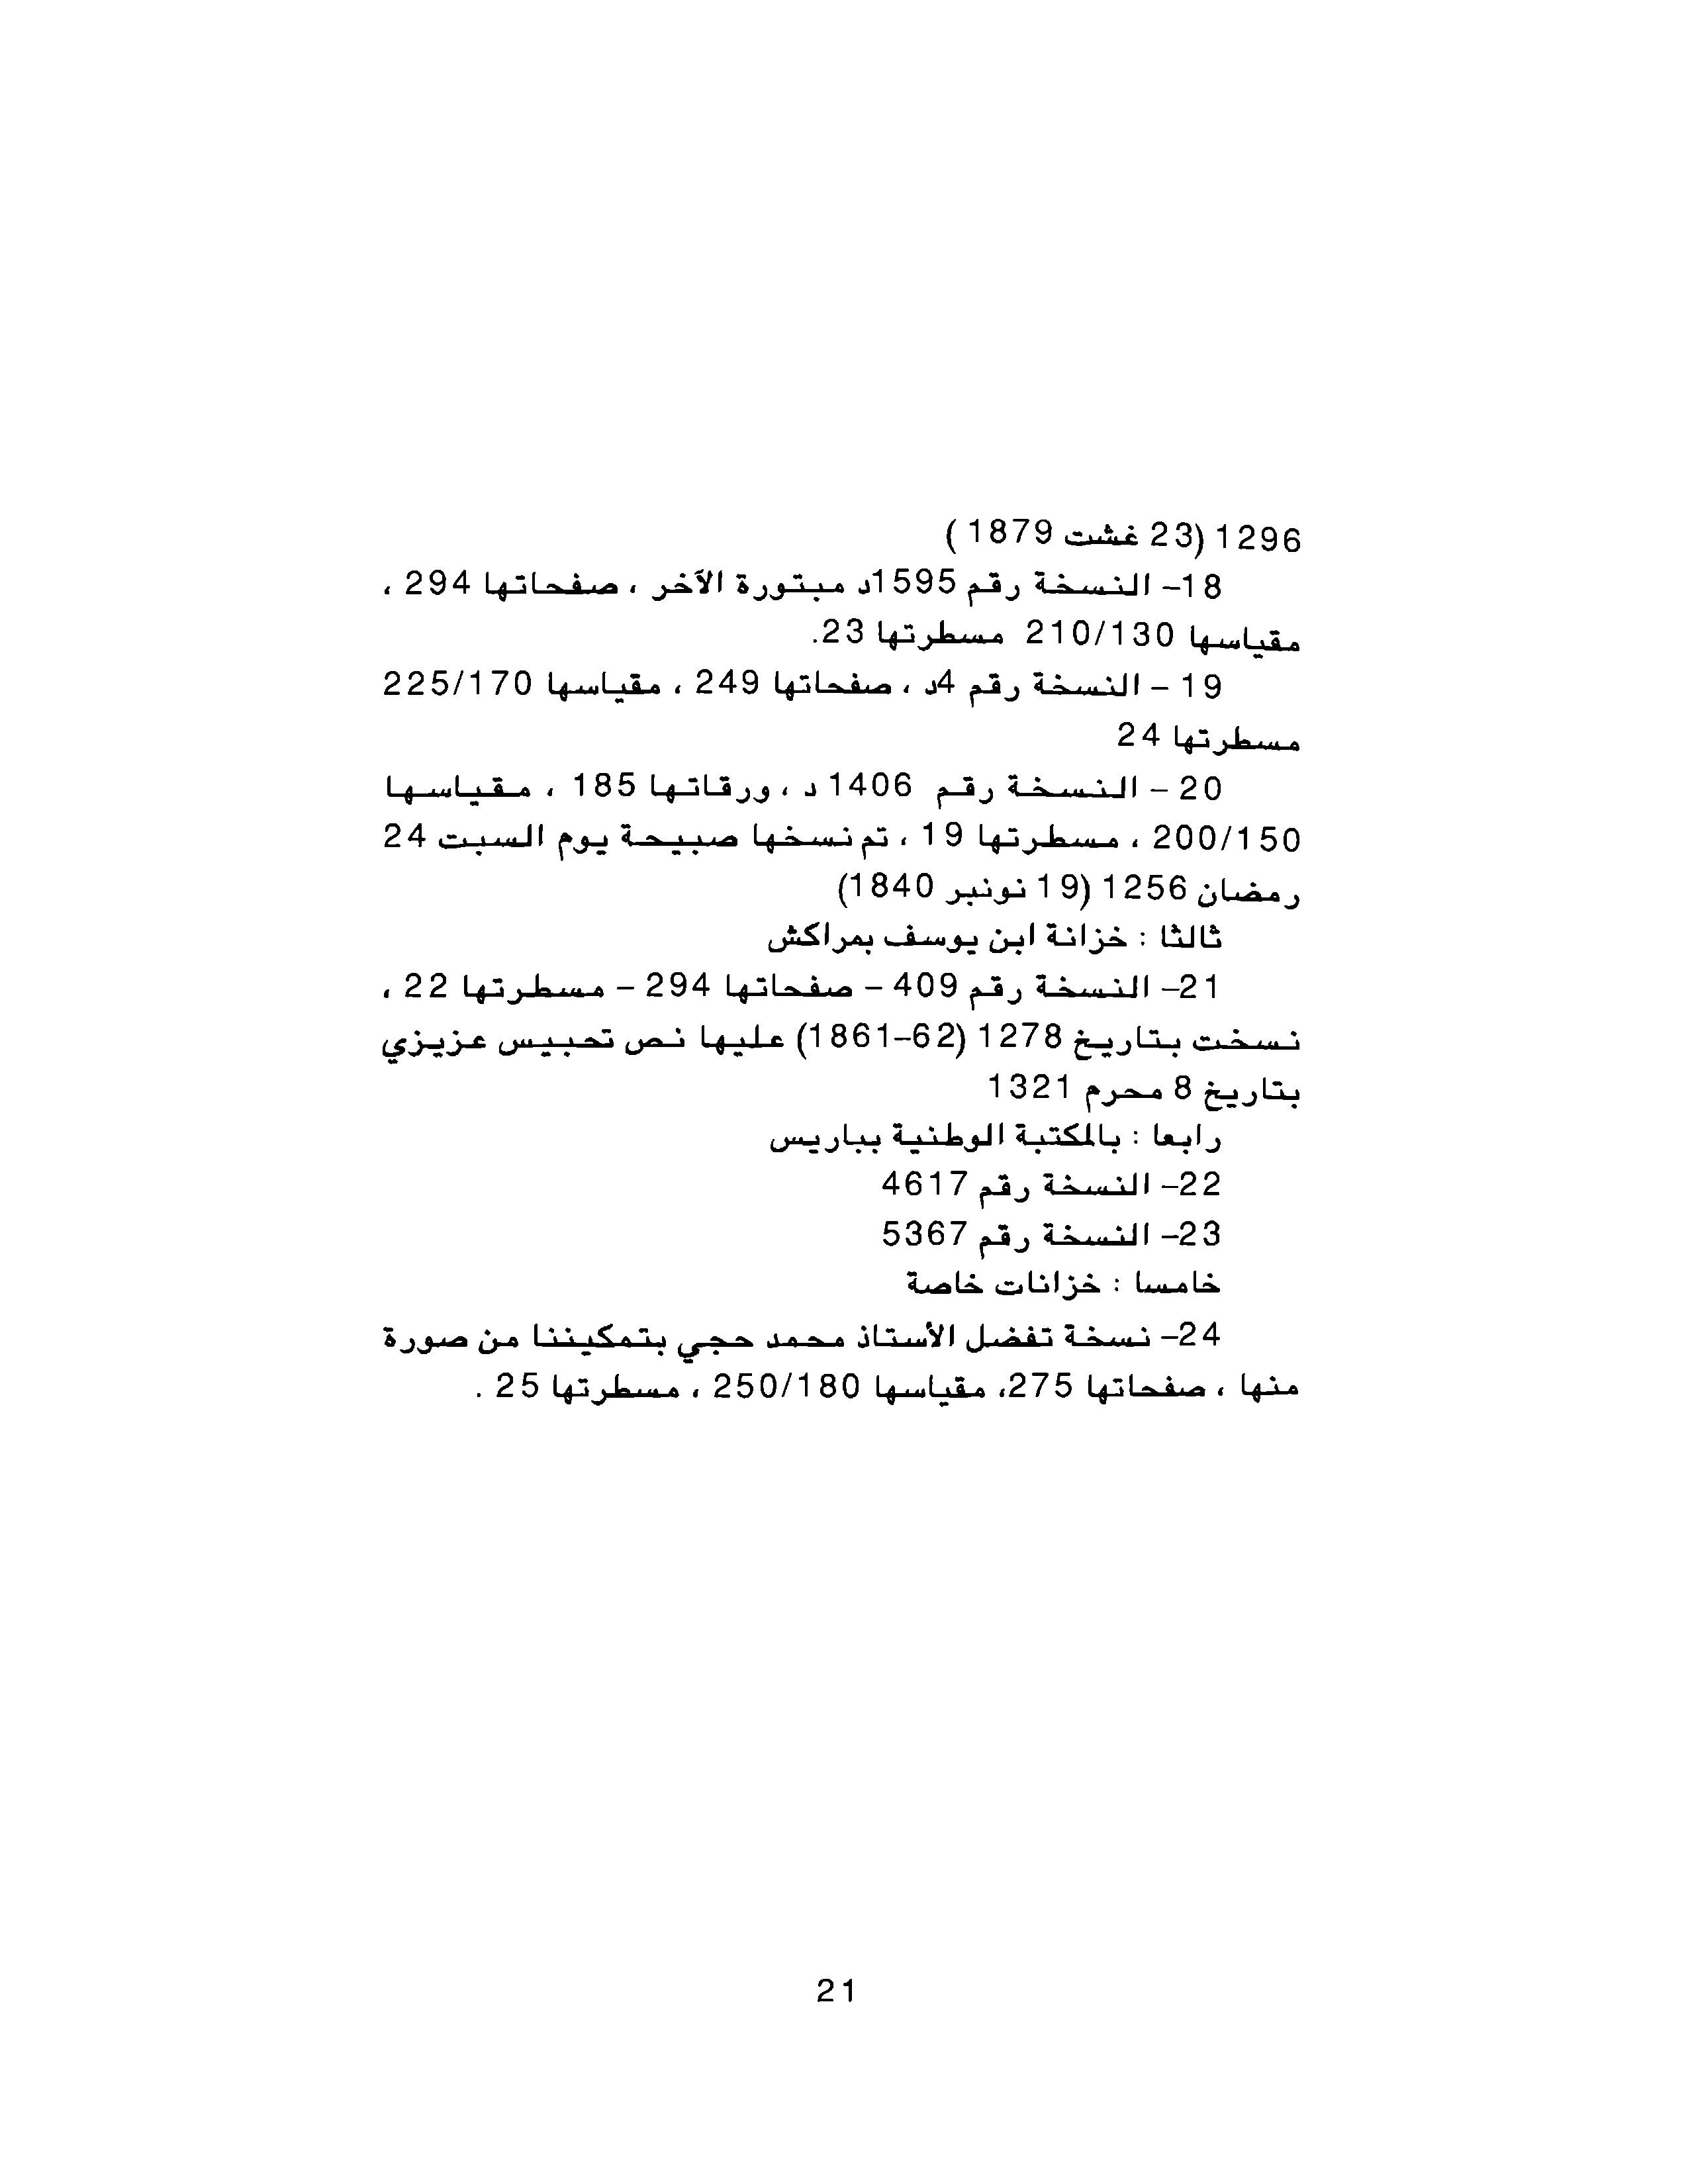 1296 (23 غشت 1879 )
18- النسخة رقم 1595د مبتورة الآخر ، صفحاتها 294 ،
مقياسها 210/130 مسطرتها 23.
19 - النسخة رقم 4د ، صفحاتها 249 ، مقياسها 225/170
مسطرتها 24
20 - النسخة رقم 1406 د ، ورقاتها 185 ، مقياسها
200/150 ، مسطرتها 19 ، تم نسخها صبيحة يوم السبت 24
رمضان 1256 (19 نونبر 1840)
ثالثا : خزانة ابن يوسف بمراكش
21- النسخة رقم 409 - صفحاتها 294 - مسطرتها 22 ،
نسخت بتاريخ 1278 (1861-62) عليها نص تحبيس عزيزي
بتاريخ 8 محرم 1321
رابعا : بالمكتبة الوطنية بباريس
22- النسخة رقم 4617
23- النسخة رقم 5367
خامسا : خزانات خاصة
24- نسخة تفضل الأستاذ محمد حجي بتمكيننا من صورة
منها ، صفحاتها 275، مقياسها 250/180 ، مسطرتها 25 .
21